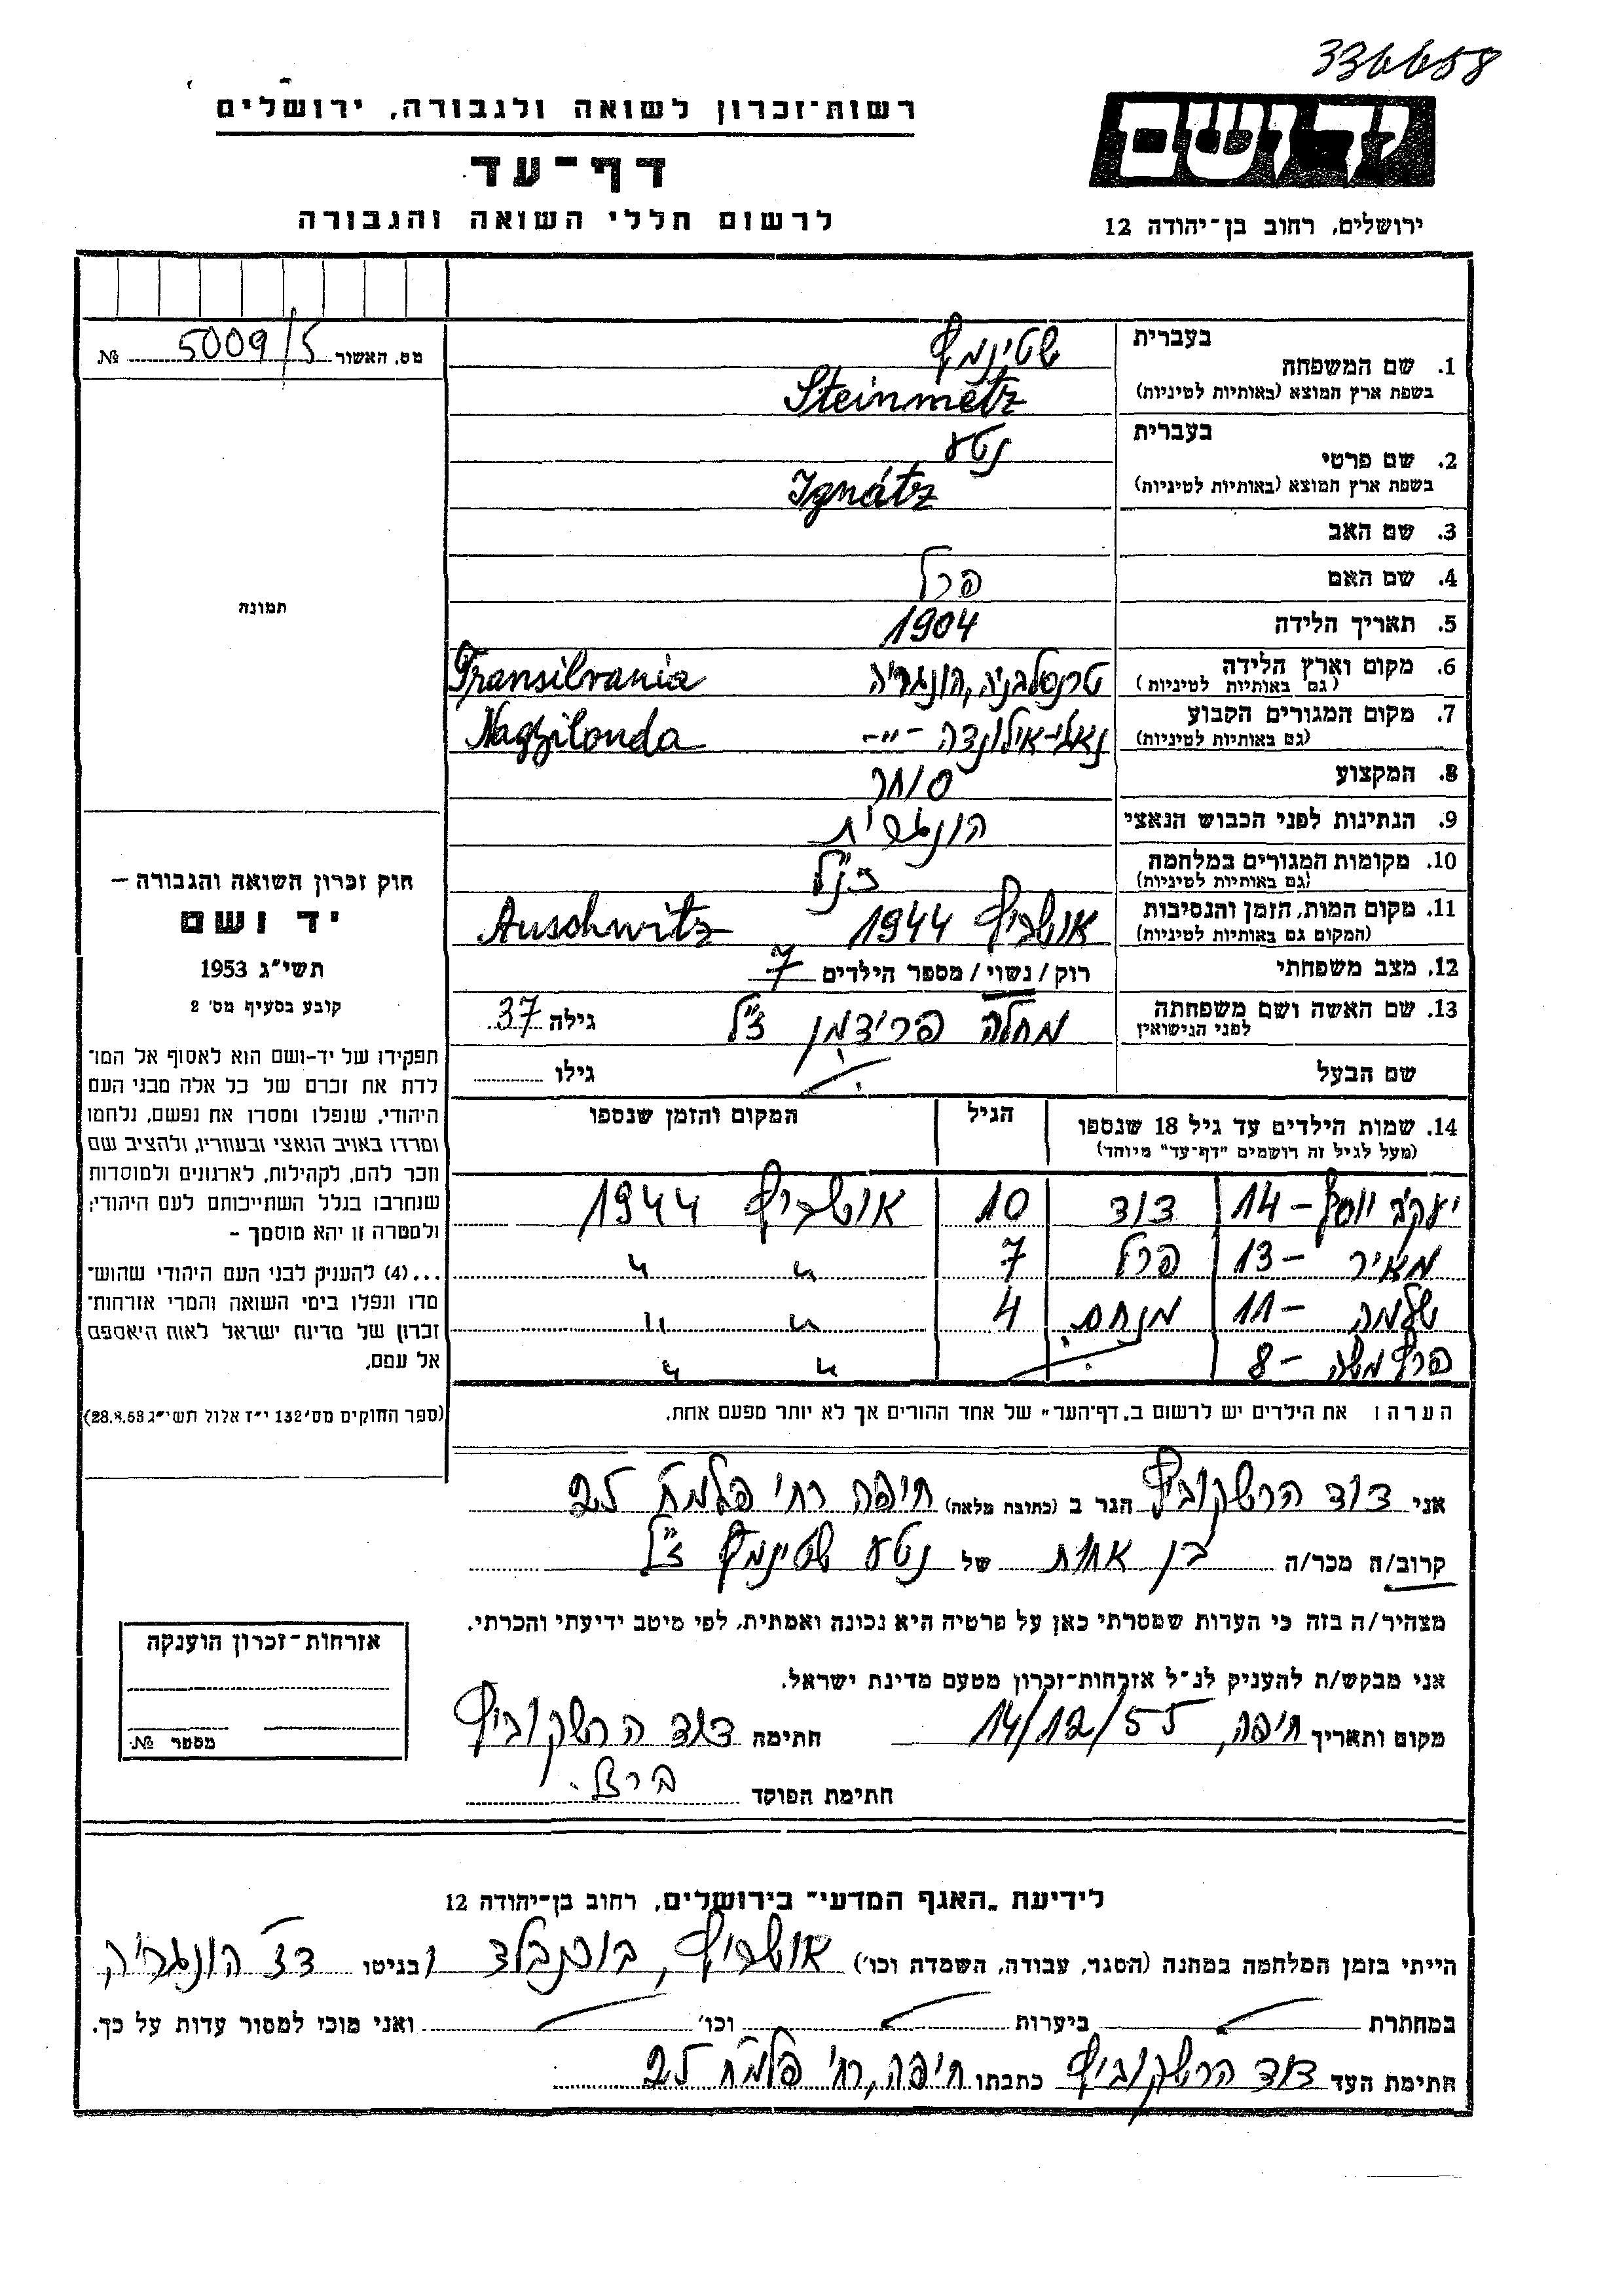 336658
רשות-זכרון לשואה ולגבורה, ירושלים
יד ושם
דף-עד
לרשום חללי השואה והגבורה
ירושלים, רחוב בן-יהודה 12
מס. האשור 5009/5 №
תמונה
בעברית
1. שם המשפחה שטינמץ
בשפת ארץ המוצא (באותיות לטיניות) Steinmetz
בעברית
2. שם פרטי נטע
בשפת ארץ המוצא (באותיות לטיניות) Ignátz
3. שם האב
4. שם האם פרל
5. תאריך הלידה 1904
6. מקום וארץ הלידה טרנסלבניה, הונגריה Transilvania
(גם באותיות לטיניות)
7. מקום המגורים הקבוע נאג'י-אילונדה -"- Nagyilonda
(גם באותיות לטיניות)
8. המקצוע סוחר
9. הנתינות לפני הכבוש הנאצי הונגרית
10. מקומות המגורים במלחמה כנ"ל
(גם באותיות לטיניות)
11. מקום המות, הזמן והנסיבות אושביץ 1944 Auschwitz
(המקום גם באותיות לטיניות)
12. מצב משפחתי רוק/נשוי/מספר הילדים 7
13. שם האשה ושם משפחתה מחלה פרידמן ז"ל גילה 37
לפני הנישואין
שם הבעל גילו
14. שמות הילדים עד גיל 18 שנספו הגיל המקום והזמן שנספו
(מעל לגיל זה רושמים "דף-עד" מיוחד)
יעקב יוסף – 14 דוד 10 אושביץ 1944
מאיר – 13 פרל 7 " "
שלמה – 11 מנחם 4 " "
פרץ משה – 8 " "
הערה: את הילדים יש לרשום ב„דף-העד" של אחד ההורים אך לא יותר מפעם אחת.
חוק זכרון השואה והגבורה –
יד ושם
תשי"ג 1953
קובע בסעיף מס' 2
תפקידו של יד-ושם הוא לאסוף אל המו־
לדת את זכרם של כל אלה מבני העם
היהודי, שנפלו ומסרו את נפשם, נלחמו
ומרדו באויב הנאצי ובעוזריו, ולהציב שם
וזכר להם, לקהילות, לארגונים ולמוסדות
שנחרבו בגלל השתייכותם לעם היהודי;
ולמטרה זו יהא מוסמך –
...(4) להעניק לבני העם היהודי שהוש־
מדו ונפלו בימי השואה והמרי אזרחות־
זכרון של מדינת ישראל לאות היאספם
אל עמם.
(ספר החוקים מס' 132 י"ז אלול תשי"ג 28.8.53)
אני דוד הרשקוביץ הגר ב (כתובת מלאה) חיפה רח' פלמח 25
קרוב/ה מכר/ה בן אחות של נטע שטינמץ ז"ל
מצהיר/ה בזה כי העדות שמסרתי כאן על פרטיה היא נכונה ואמתית, לפי מיטב ידיעתי והכרתי.
אני מבקש/ת להעניק לנ"ל אזרחות-זכרון מטעם מדינת ישראל.
מקום ותאריך חיפה, 14/12/55 חתימה דוד הרשקוביץ
חתימת הפוקד
אזרחות-זכרון הוענקה
מספר №
לידיעת „האגף המדעי" בירושלים, רחוב בן-יהודה 12
הייתי בזמן המלחמה במחנה (הסגר, עבודה, השמדה וכו') אושביץ, בוכנבלד ובגיטו דז' הונגריה
במחתרת ביערות וכו' ואני מוכן למסור עדות על כך.
חתימת העד דוד הרשקוביץ כתבתו חיפה, רח' פלמח 25